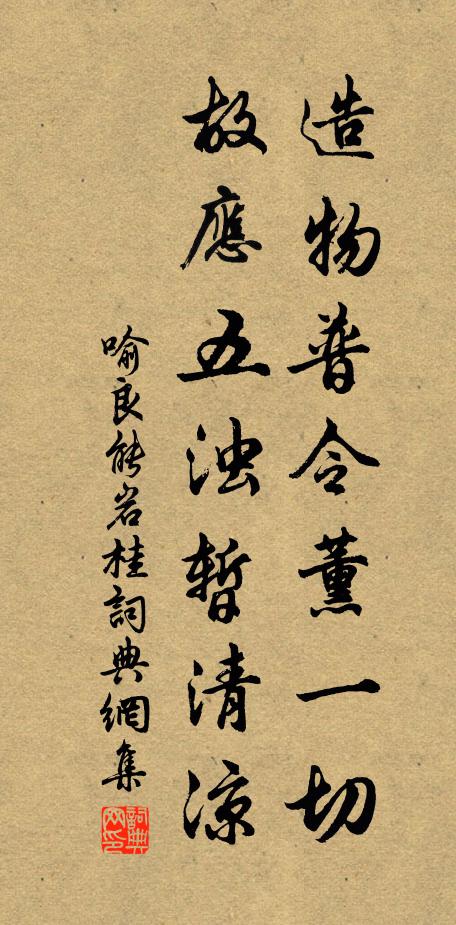 造物普令薰一切
故應五浊暫清涼
喻良能岩桂詞典網集
詞典网印